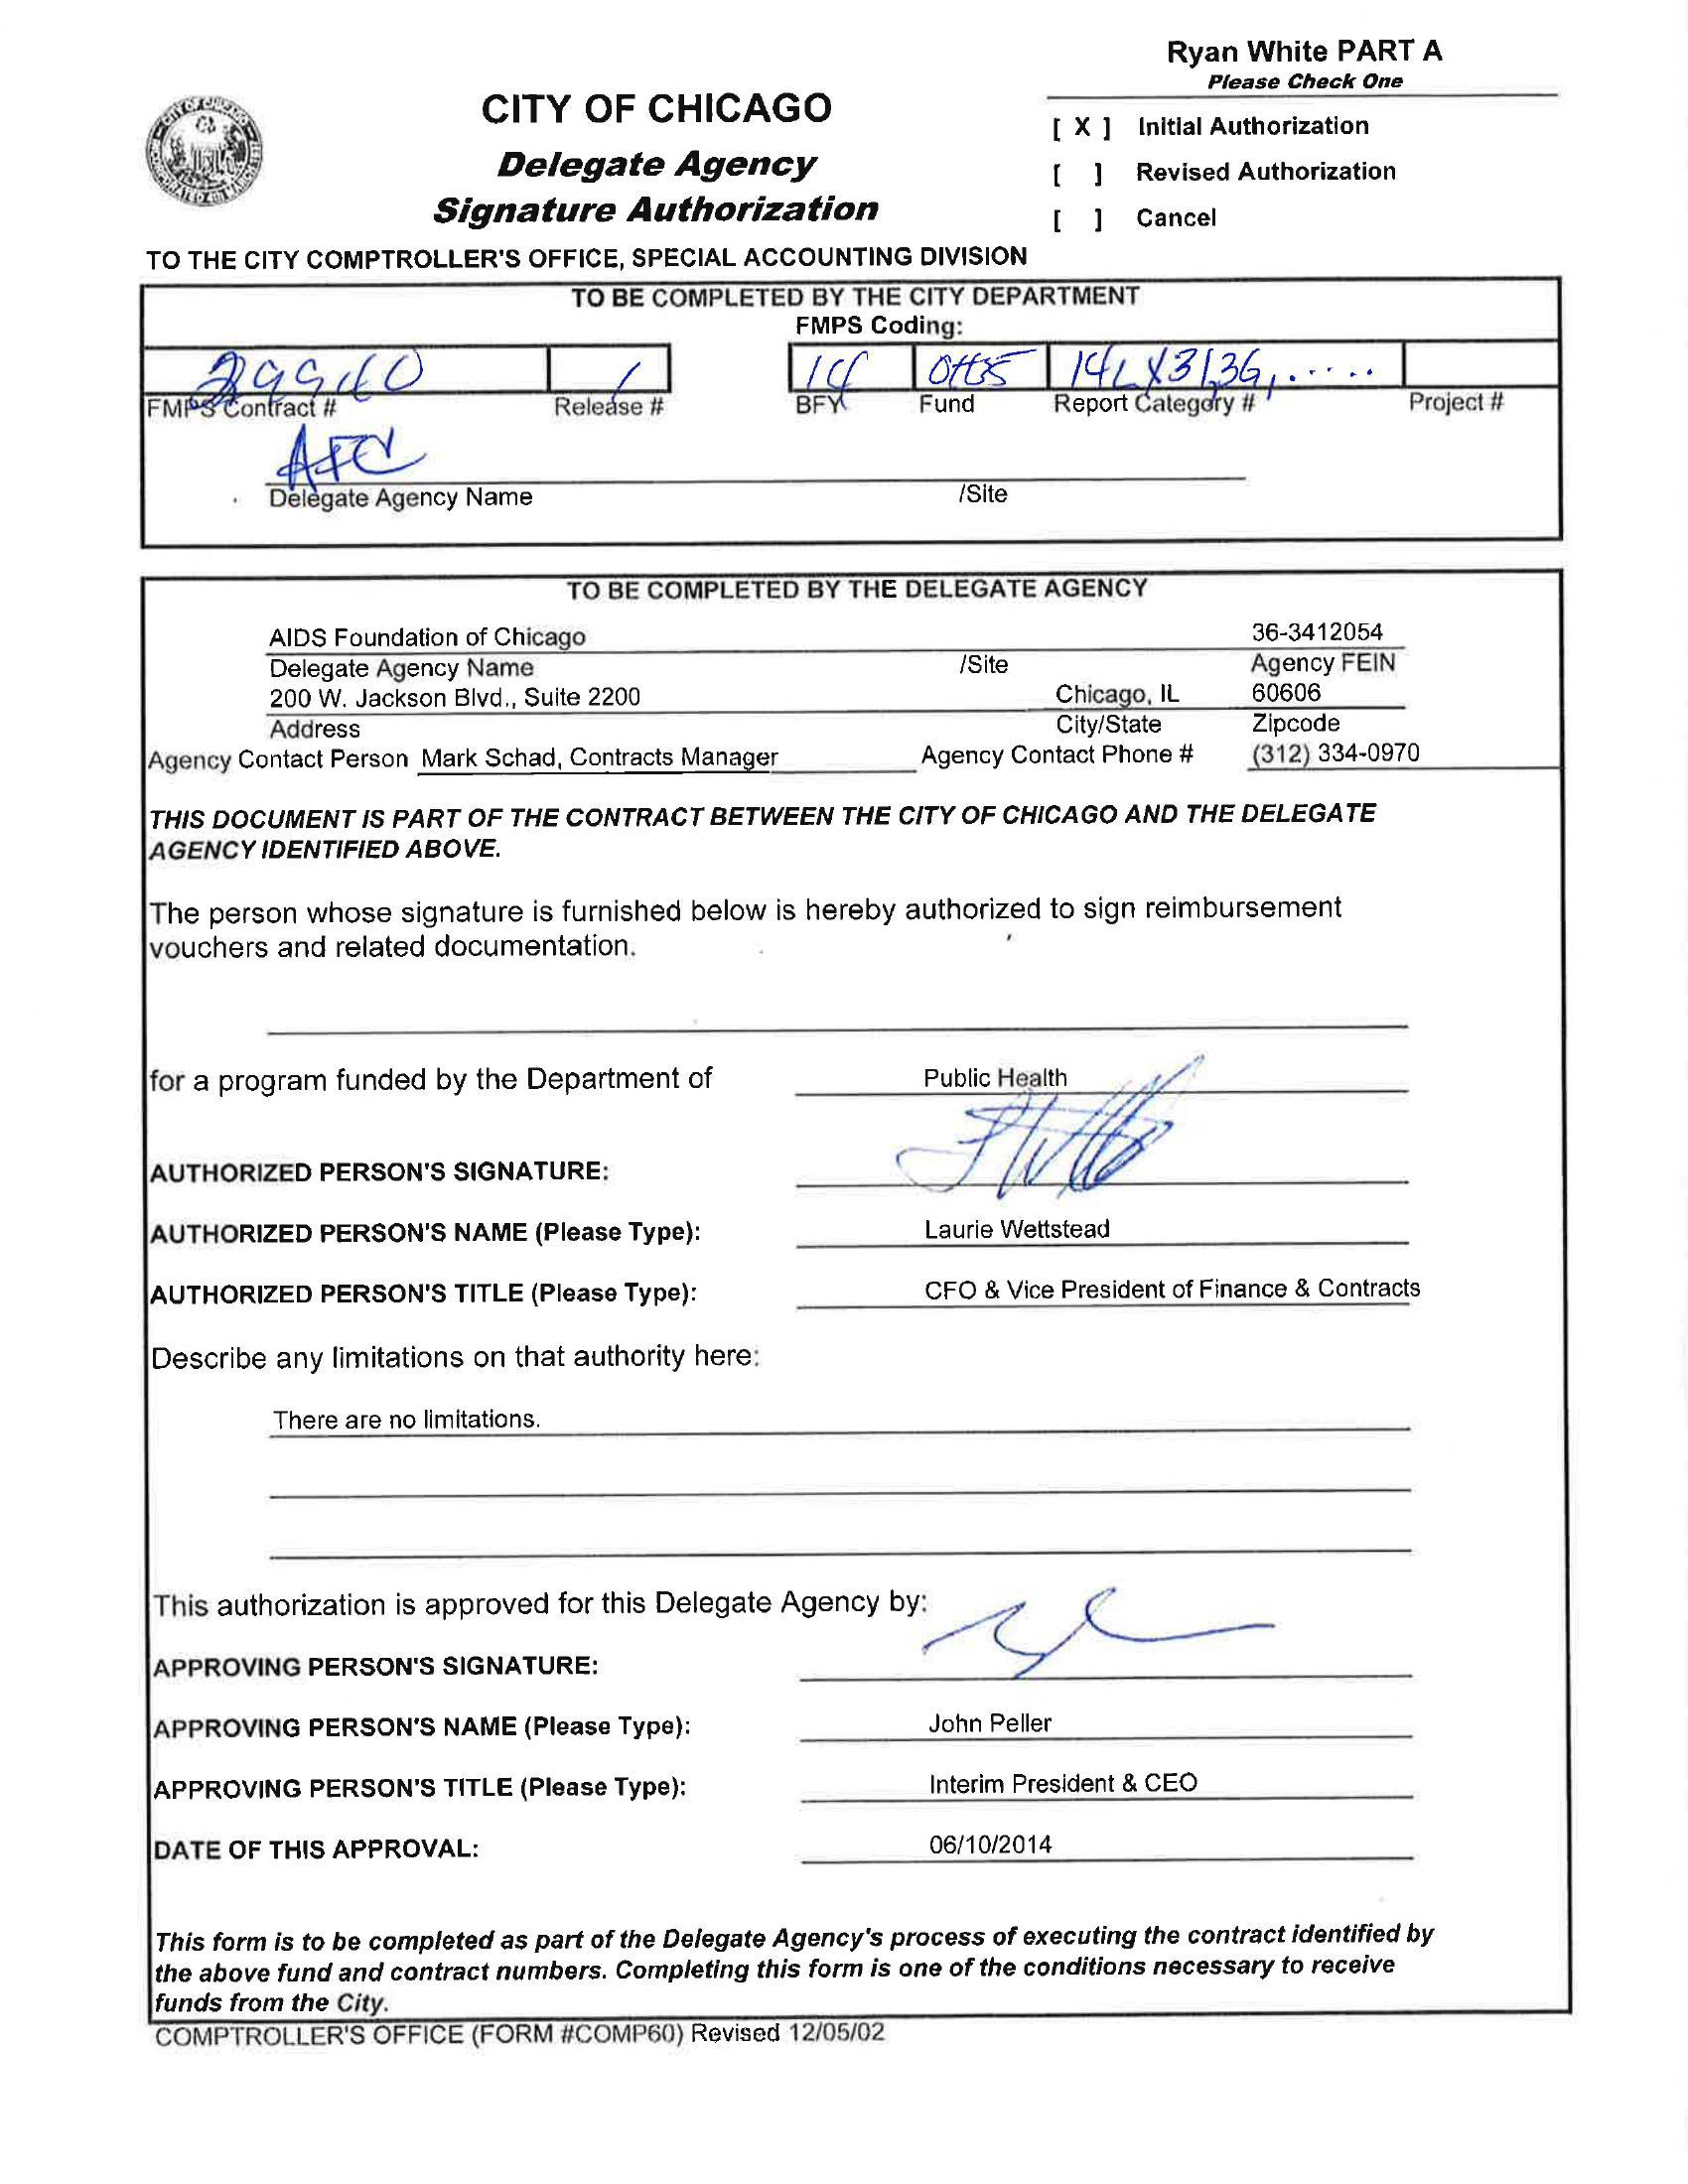 Ryan White PART A
Please Check One
CITY OF CHICAGO
Delegate Agency
Signature Authorization
[ X ] Initial Authorization
[ ] Revised Authorization
[ ] Cancel
TO THE CITY COMPTROLLER'S OFFICE, SPECIAL ACCOUNTING DIVISION
TO BE COMPLETED BY THE CITY DEPARTMENT
FMPS Coding:
29940 1 14
FMPS Contract # Release # BFY Fund Report Category # Project #
AFC
Delegate Agency Name /Site
TO BE COMPLETED BY THE DELEGATE AGENCY
AIDS Foundation of Chicago 36-3412054
Delegate Agency Name /Site Agency FEIN
200 W. Jackson Blvd., Suite 2200 Chicago, IL 60606
Address City/State Zipcode
Agency Contact Person Mark Schad, Contracts Manager Agency Contact Phone # (312) 334-0970
THIS DOCUMENT IS PART OF THE CONTRACT BETWEEN THE CITY OF CHICAGO AND THE DELEGATE
AGENCY IDENTIFIED ABOVE.
The person whose signature is furnished below is hereby authorized to sign reimbursement
vouchers and related documentation.
for a program funded by the Department of Public Health
AUTHORIZED PERSON'S SIGNATURE:
AUTHORIZED PERSON'S NAME (Please Type): Laurie Wettstead
AUTHORIZED PERSON'S TITLE (Please Type): CFO & Vice President of Finance & Contracts
Describe any limitations on that authority here:
There are no limitations.
This authorization is approved for this Delegate Agency by:
APPROVING PERSON'S SIGNATURE:
APPROVING PERSON'S NAME (Please Type): John Peller
APPROVING PERSON'S TITLE (Please Type): Interim President & CEO
DATE OF THIS APPROVAL: 06/10/2014
This form is to be completed as part of the Delegate Agency's process of executing the contract identified by
the above fund and contract numbers. Completing this form is one of the conditions necessary to receive
funds from the City.
COMPTROLLER'S OFFICE (FORM #COMP60) Revised 12/05/02